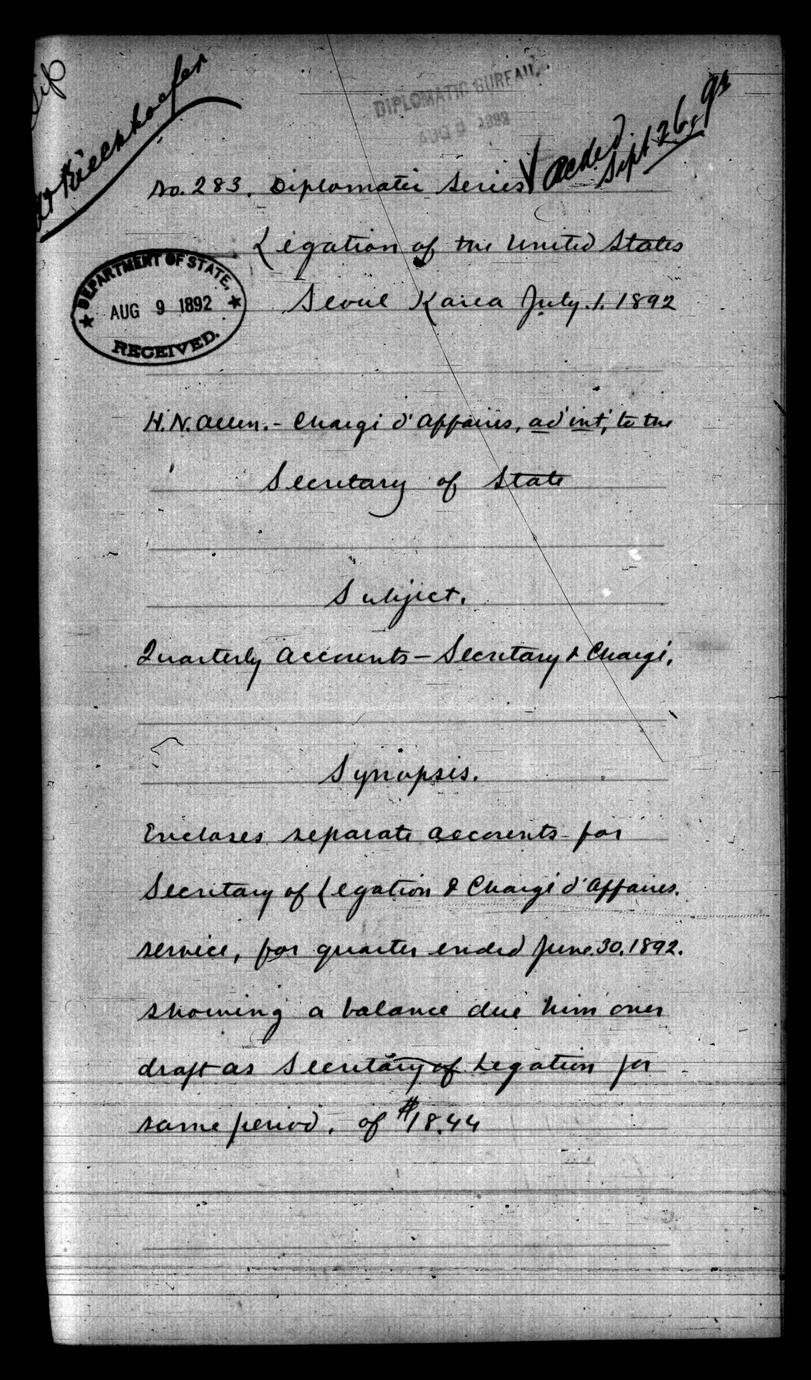 DIPLOMATIC BUREAU.
AUG 9 1892
Ackd
Sept 26, 92
No. 283. Diplomatic Series
Legation of the United States
Seoul Korea July. 1. 1892
DEPARTMENT OF STATE,
AUG 9 1892
RECEIVED.
H. N. Allen. - Chargé d'Affaires, ad int, to the
Secretary of State
Subject.
Quarterly Accounts - Secretary & Chargé,
Synopsis.
Encloses separate accounts for
Secretary of Legation & Chargé d'Affaires.
service, for quarter ended June. 30. 1892.
showing a balance due him over
draft as Secretary of Legation for
same period, of $18.44